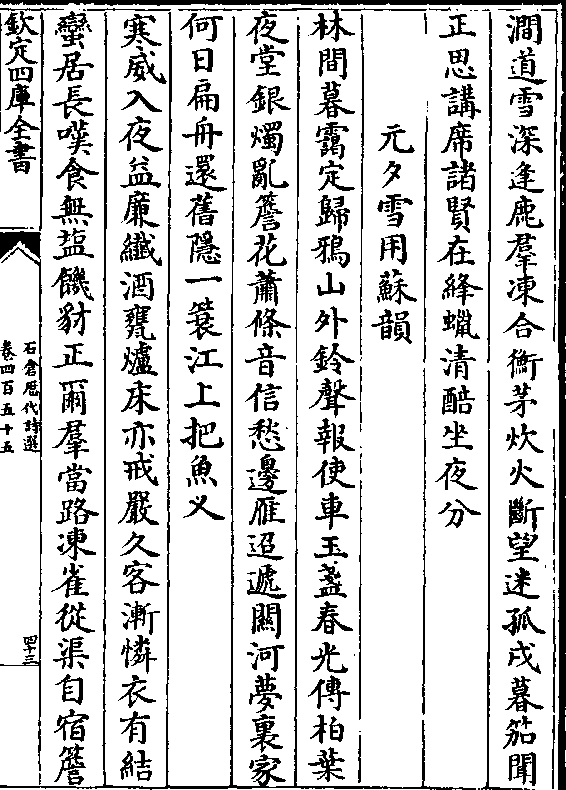 澗道雪深逢鹿羣凍合衡茅炊火斷望迷孤戍暮笳聞
正思講席諸賢在絳蠟清酤坐夜分
元夕雪用蘇韻
林間暮靄定歸鴉山外鈴聲報使車玉盞春光傳柏葉
夜堂銀燭亂簷花蕭條音信愁邊雁迢遞關河夢裏家
何日扁舟還舊隱一蓑江上把魚义
寒威入夜益廉纖酒甕爐床亦戒嚴久客漸憐衣有結
蠻居長嘆食無塩饑豺正爾羣當路凍雀從渠自宿簷
欽定四庫全書
石倉歷代詩選
卷四百五十五
四十三